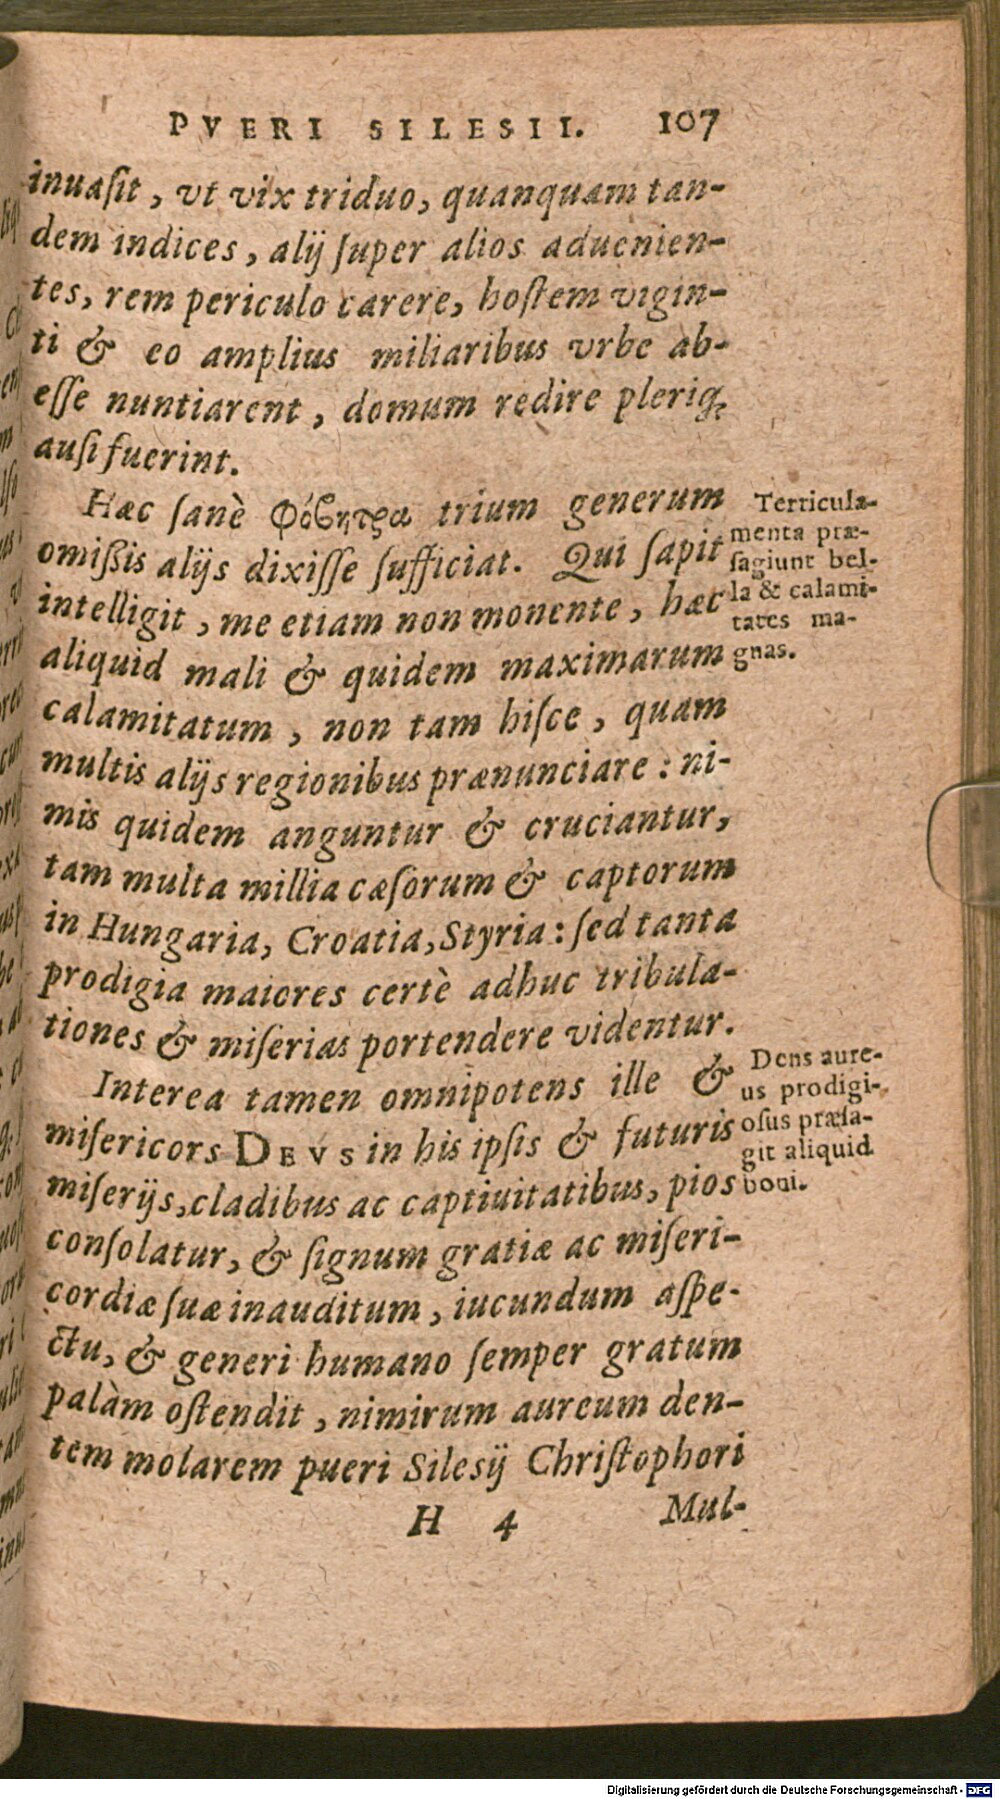 PVERI SILESII. 107
inuaſit, vt vix triduo, quanquam tan-
dem indices, alij ſuper alios aduenien-
tes, rem periculo carere, hoſtem vigin-
ti & eo amplius miliaribus vrbe ab-
eſſe nuntiarent, domum redire pleriq;
auſi fuerint.
Hæc ſanè φόβητρα trium generum
omiſsis alijs dixiſſe ſufficiat. Qui ſapit
intelligit, me etiam non monente, hæc
aliquid mali & quidem maximarum
calamitatum, non tam hiſce, quam
multis alijs regionibus prænunciare: ni-
mis quidem anguntur & cruciantur,
tam multa millia cæſorum & captorum
in Hungaria, Croatia, Styria: ſed tanta
prodigia maiores certè adhuc tribula-
tiones & miſerias portendere videntur.
Terricula-
menta præ-
ſagiunt bel-
la & calami-
tates ma-
gnas.
Interea tamen omnipotens ille &
miſericors DEVS in his ipſis & futuris
miſerijs, cladibus ac captiuitatibus, pios
conſolatur, & ſignum gratiæ ac miſeri-
cordiæ ſuæ inauditum, iucundum aſpe-
ctu, & generi humano ſemper gratum
palàm oſtendit, nimirum aureum den-
tem molarem pueri Silesij Chriſtophori
Dens aure-
us prodigi-
oſus præſa-
git aliquid
boni.
H 4 Mul-
Digitalisierung gefördert durch die Deutsche Forschungsgemeinschaft - DFG